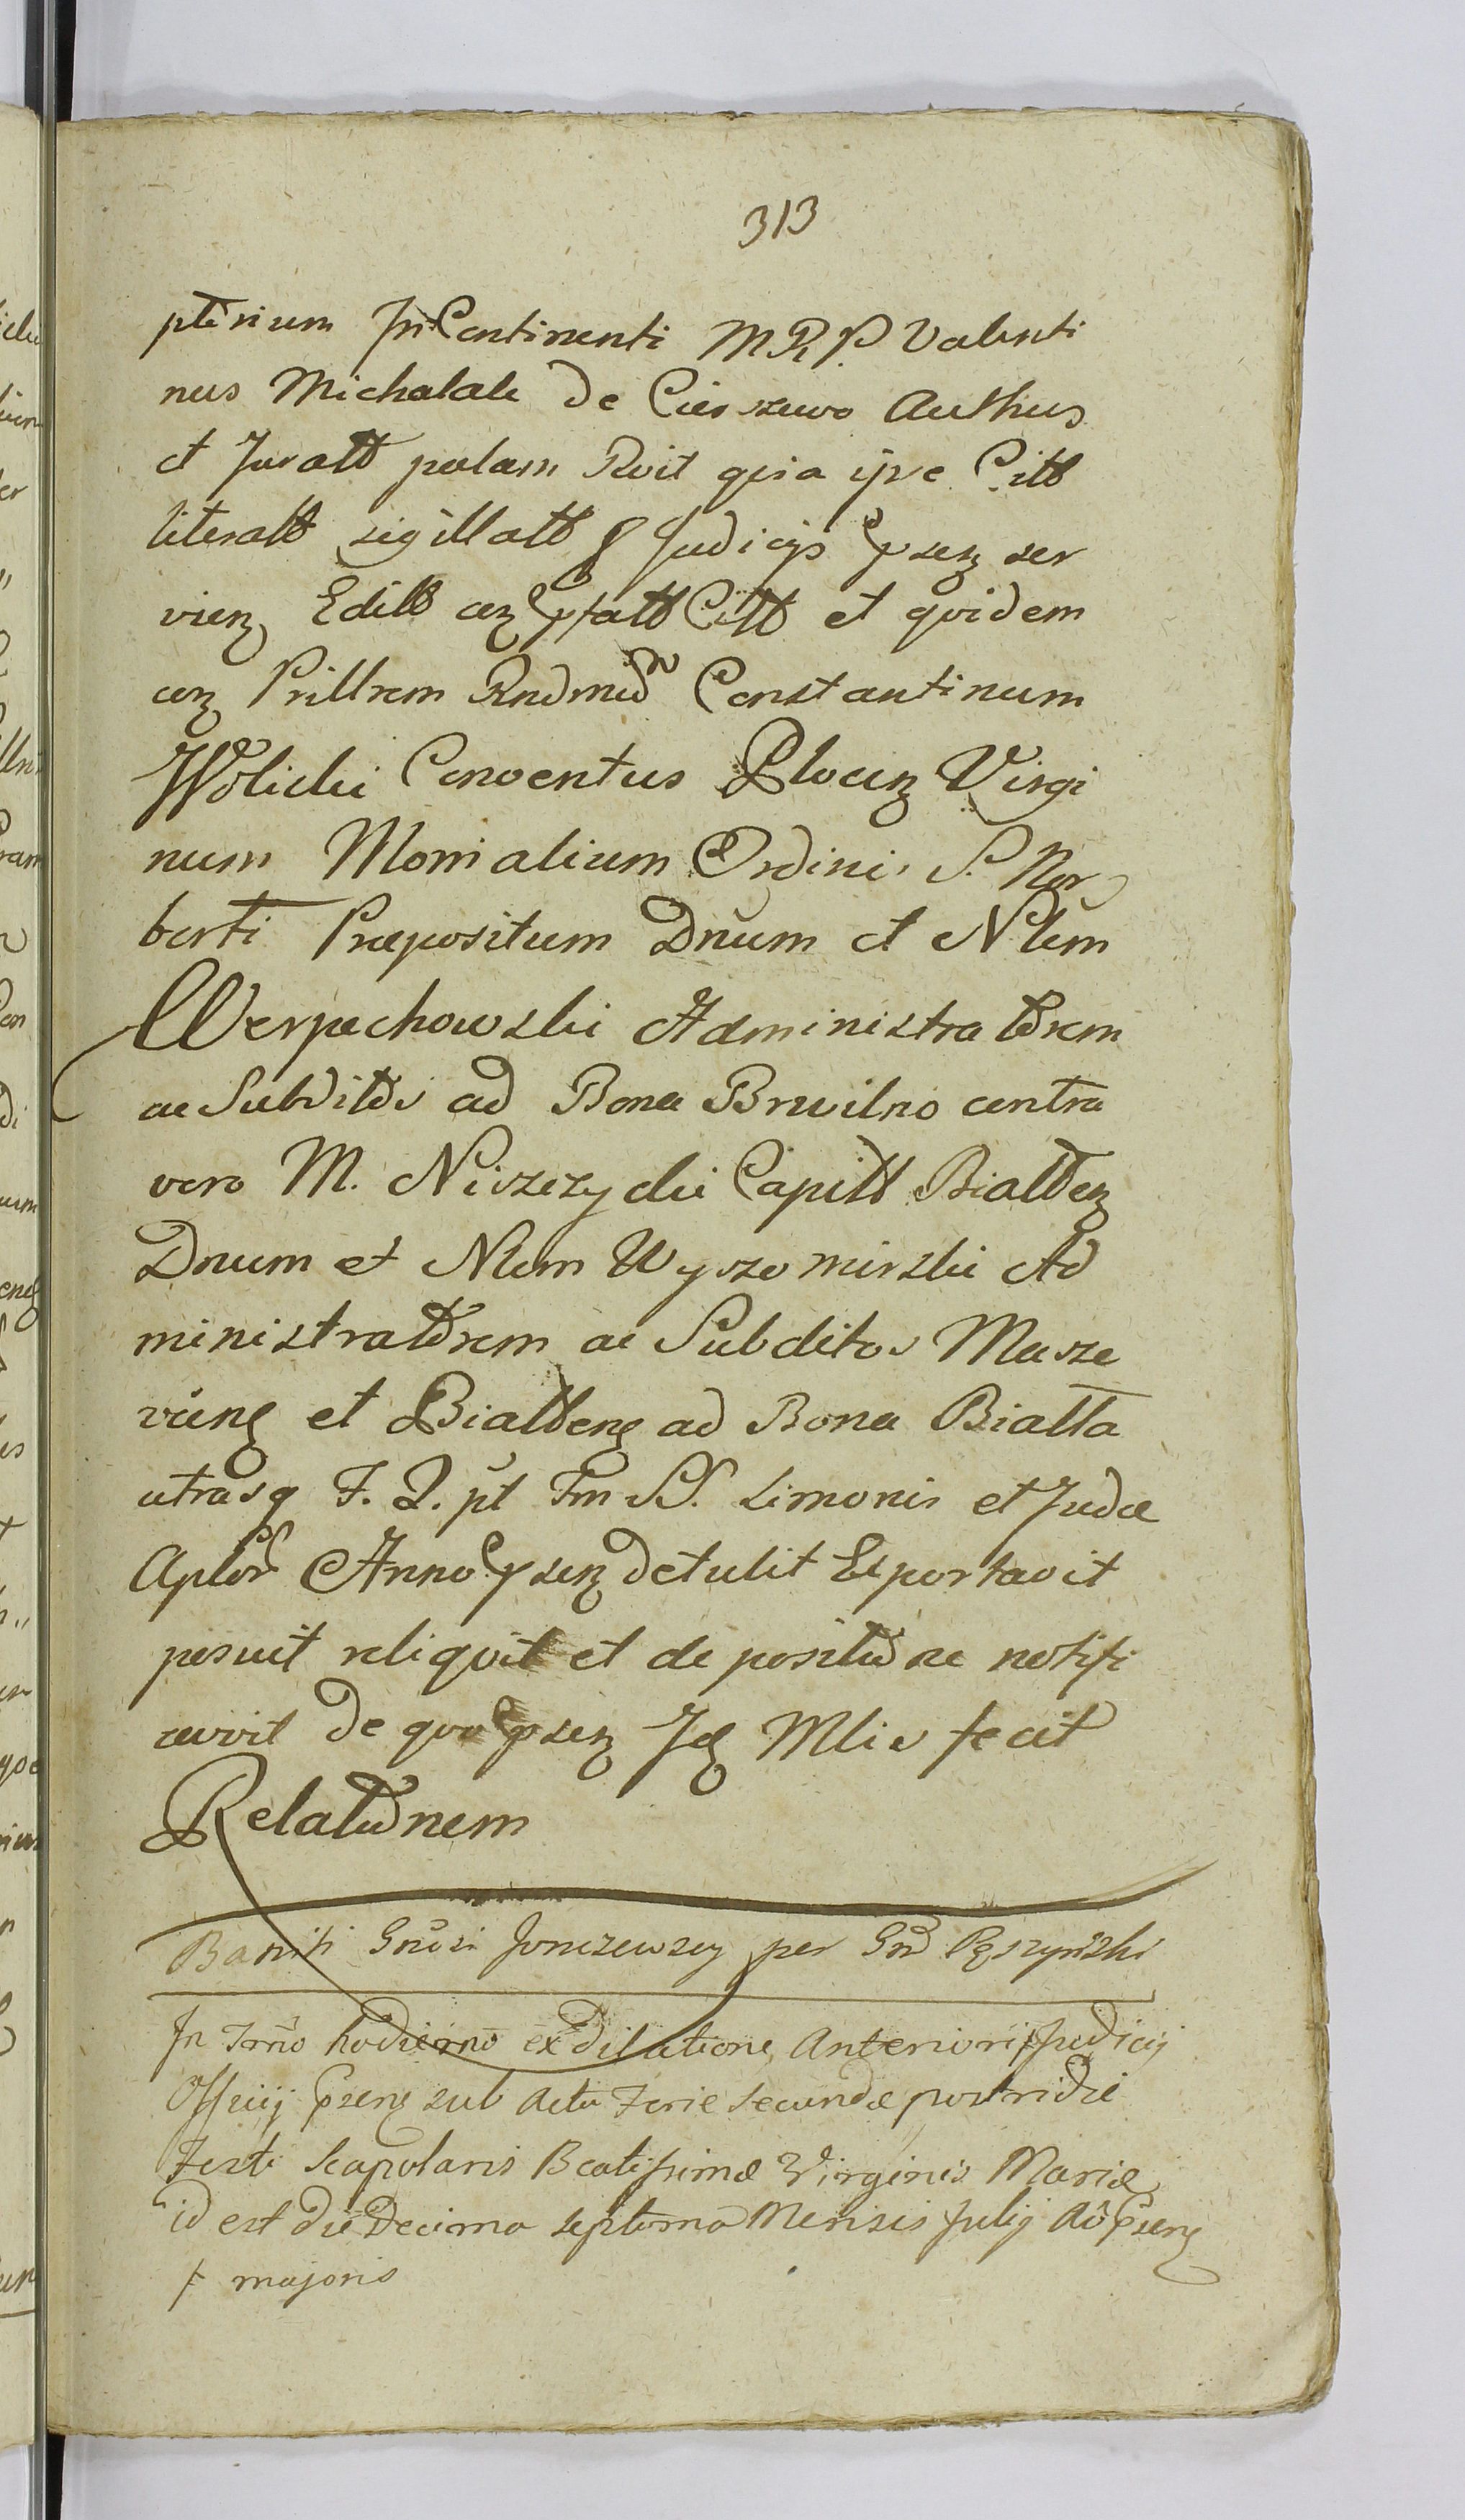 313
pterium In Continenti M R P Valenti
nus Michalak de Cieszewo Authus
et Juratt palam Rvit qvia ipse Citt
literatt sigillatt p Judicys psen ser
vien Editt con pfatt Citt et qvidem
con Prillrem Rndmum Constantinum
Wolicki Conventus Plocen Virgi
num Monialium Ordinis S. Nor
berti Præpositum Dnum et Nlem
Werpachowski Administratorem
ac Subditos ad Bona Brwilno contra
vero M. Niszczycki Capitt Biatten
Dnum et Nlem Wyszomirski Ad
ministratorem ac Subditos Masze
vien et Biatten ad Bona Biatta
utrasq F. 2. pt Fm SS. Simonis et Judæ
Aplor Anno psen detulit Exportavit
posuit reliqvit et de positione notifi
cavit de qvo psen Je Mlis fecit
Relationem
Baniti Gnosi Jonczewscy per Gnd Pęszyński
In Trno hodierno ex Dilatione Anteriori Judicij
Officij psens sub Actu Feriæ Secundæ postridie
Festi Scapolaris Beatissimæ Virginis Mariæ
id est die Decima septima Mensis Julij Ao psens
majoris